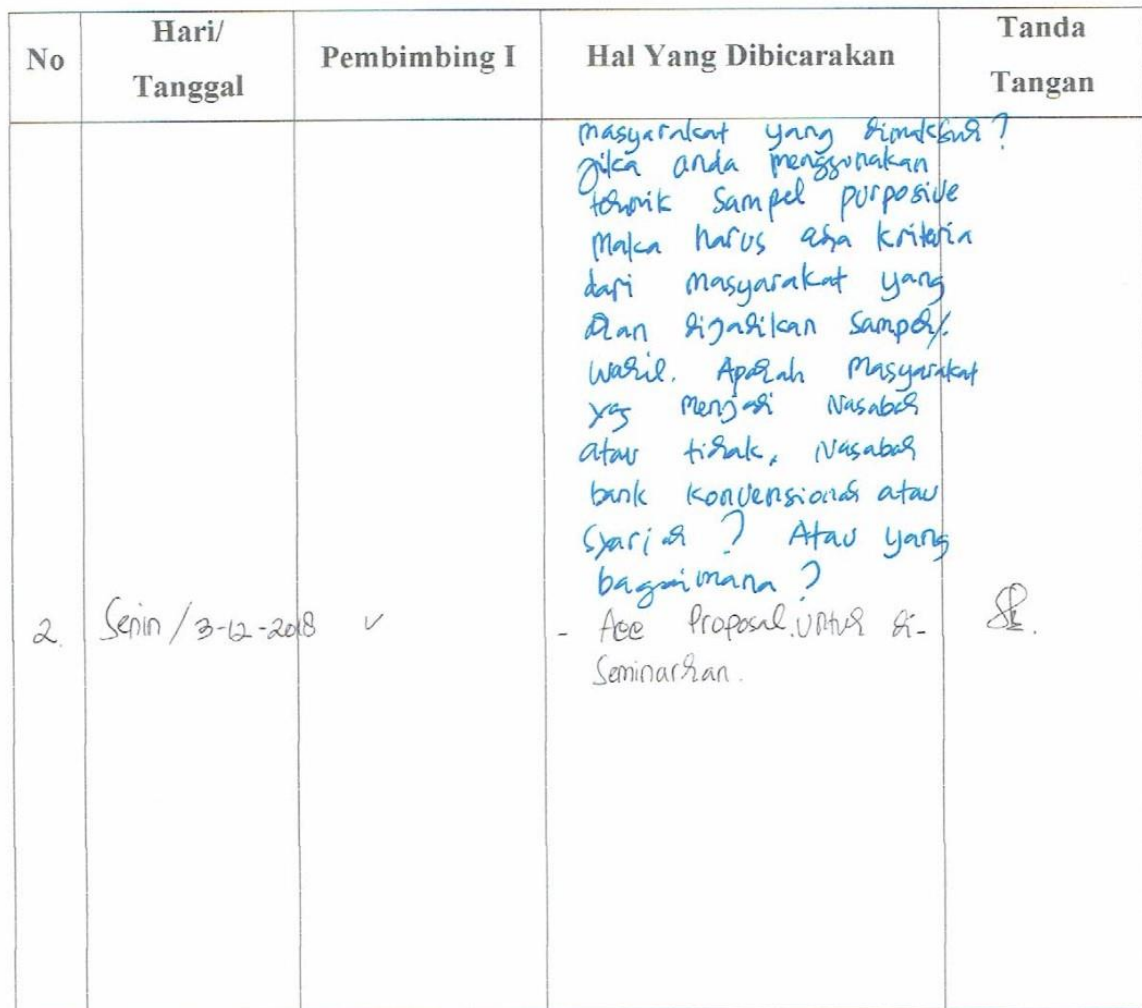 No
Hari/
Tanggal
Pembimbing I
Hal Yang Dibicarakan
Tanda
Tangan
masyarakat yang dimaksud?
jika anda menggunakan
teknik sampel purposive
maka harus ada kriteria
dari masyarakat yang
akan dijadikan sampel/.
wakil. Apakah masyarakat
yg menjadi Nasabah
atau tidak, Nasabah
bank konvensional atau
syariah ? Atau yang
bagaimana ?
2. Senin / 3-12-2018 ✓ - Acc Proposal untuk di-
Seminarkan.